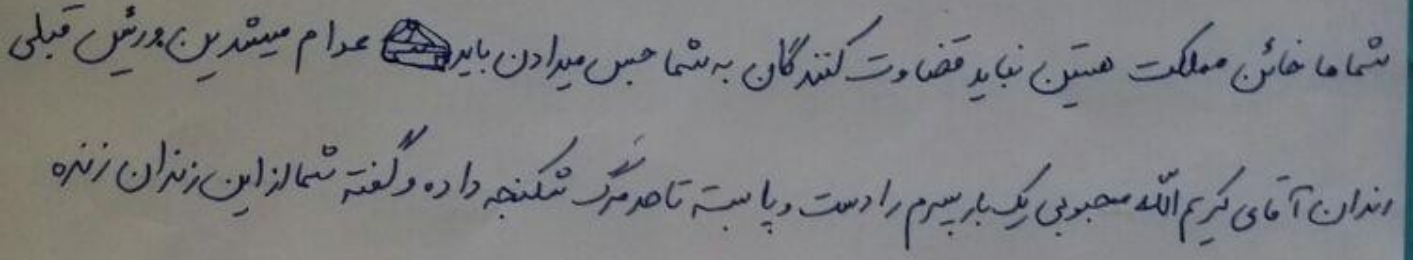 شماها خائن مملکت هستین نباید قضاوت کنندگان به شما حبس میدادن باید عدام میشدین ورئس قبلی
زندان آقای کریم الله محبوبی یک بار پسرم را دست و پا بسته تا حد مرگ شکنجه داده و گفته شما از این زندان زنده